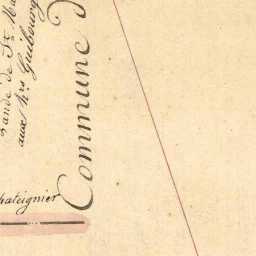 Lande de St. Ma
aux hrs Guibourg
Commune d
hateignier